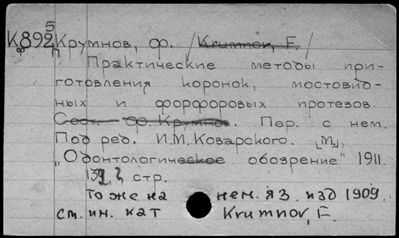 К892⁵ Крумнов, Ф. /Krumnov, F./
8
п Практические методы при-
готовления коронок, мостовид-
ных и форфоровых протезов.
Сост. Ф. Крумнов. Пер. с нем.
Под ред. И.М. Коварского. [М.],
„Одонтологическое обозрение" 1911.
стр.
То же на нем. яз. изд 1909.
см. ин. кат Krumnov, F.